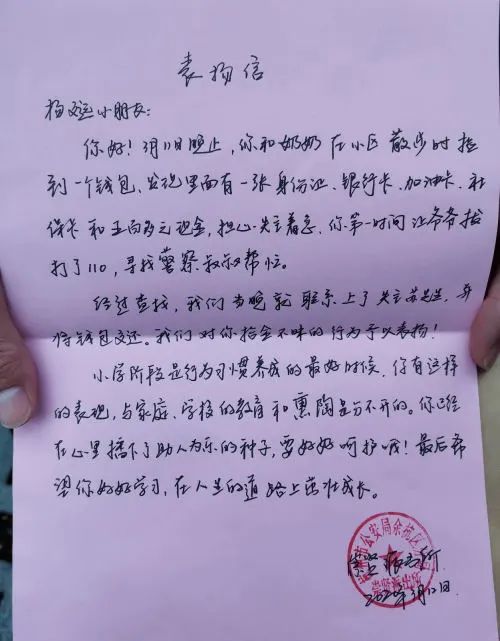 表扬信
杨文远小朋友:
你好!3月11日晚上,你和奶奶在小区散步时捡
到一个钱包,发现里面有一张身份证、银行卡、加油卡、社
保卡和五百多元现金,担心失主着急,你第一时间让爷爷拨
打了110,寻找警察叔叔帮忙。
经过查找,我们当晚就联系上了失主苏先生,并
将钱包交还。我们对你拾金不昧的行为予以表扬!
小学阶段是行为习惯养成的最好时候,你有这样
的表现,与家庭、学校的教育和熏陶是分不开的。你已经
在心里播下了助人为乐的种子,要好好呵护哦!最后希
望你好好学习,在人生的道路上茁壮成长。
崇贤派出所
3月12日
市公安局余杭区
崇贤派出所